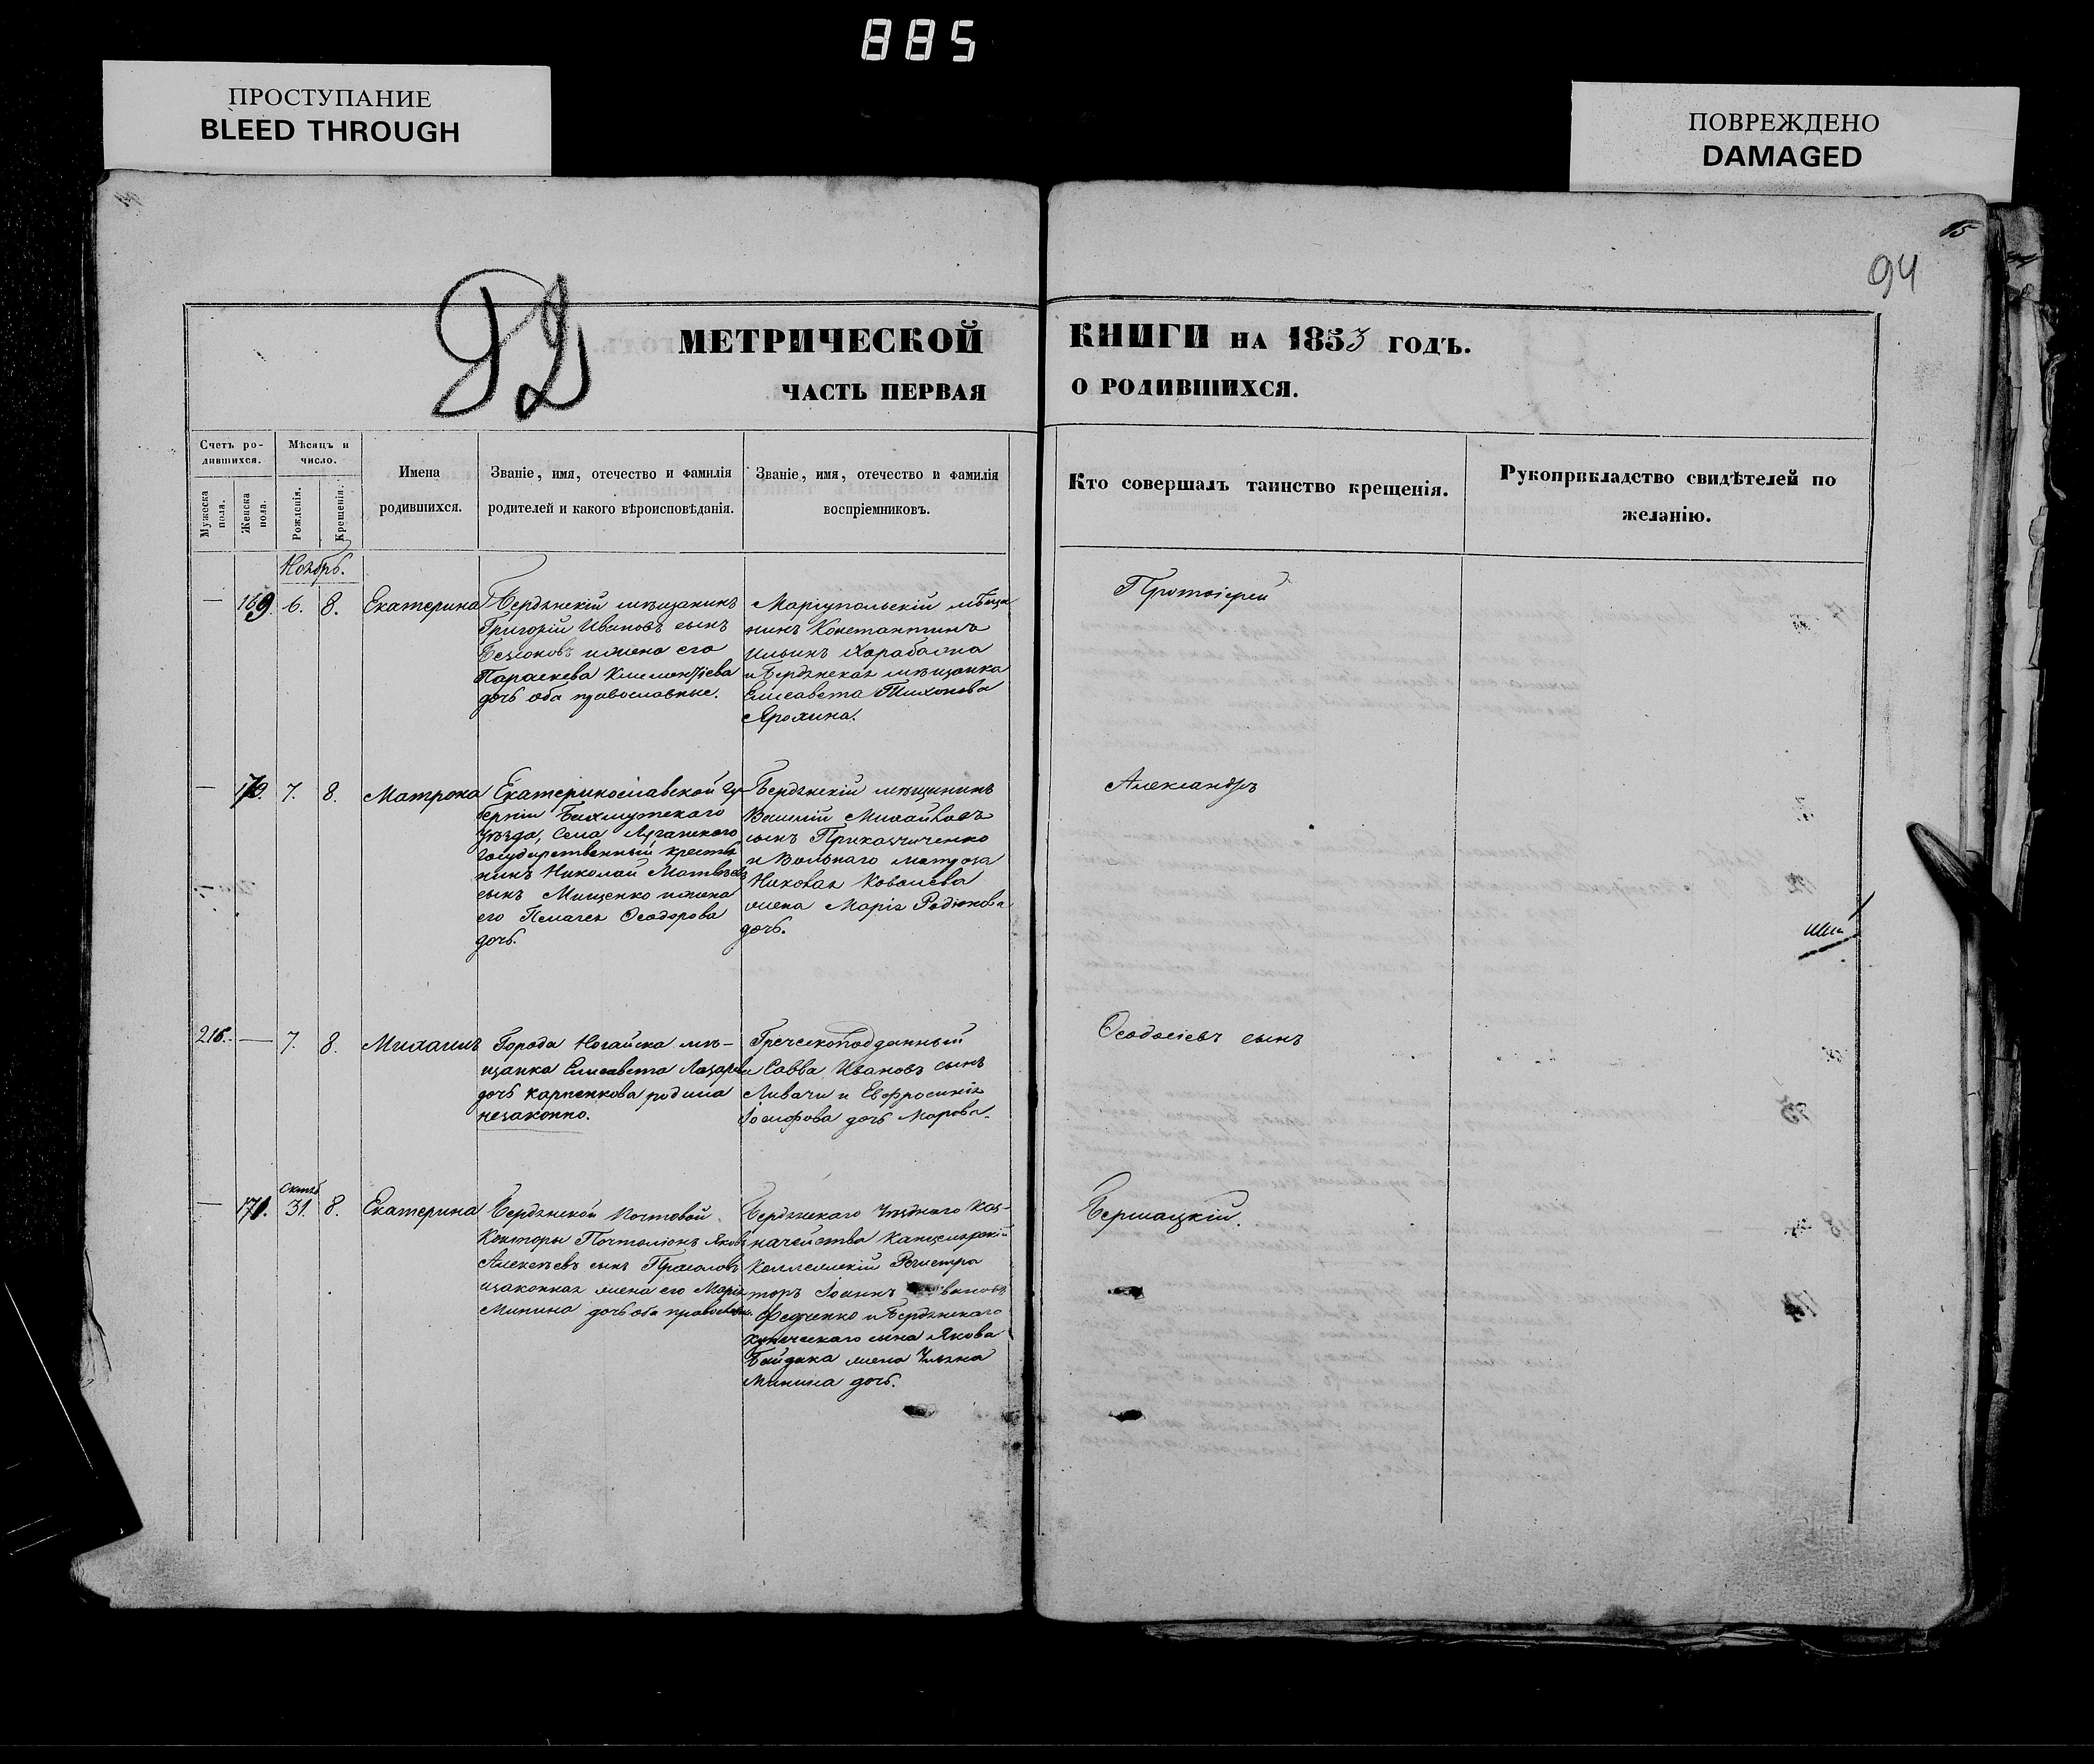 885
ПРОСТУПАНИЕ
BLEED THROUGH
ПОВРЕЖДЕНО
DAMAGED
15
94
МЕТРИЧЕСКОЙ
ЧАСТЬ ПЕРВАЯ
Счетъ ро-
дившихся.
Мѣсяцъ и
число.
Мужеска
пола.
Женска
пола.
Рожденія.
Крещенія.
Имена
родившихся.
Званіе, имя, отечество и фамилія
родителей и какого вѣроисповѣданія.
Званіе, имя, отечество и фамилія
воспріемниковъ.
Ноябрь.
— 169. 6. 8. Екатерина
Бердянскій мѣщанинъ
Григорій Ивановъ сынъ
и жена его
Параскева Климентіева
дочь оба православные.
Маріупольскій мѣща
нинъ Константинъ
Ильинъ Харабаша
и Бердянская мѣщанка
Елисавета Тихонова
Ярохина.
— 170. 7. 8. Матрона
Екатеринославской Гу-
берніи Бахмутскаго
Уѣзда, Села Луганскаго
государственный крестья
нинъ Николай Матвѣевъ
сынъ Мищенко и жена
его Пелагея Ѳеодорова
дочь.
Бердянскій мѣщанинъ
Василій Михайловъ
сынъ Приказчиченко
и Вольнаго матроза
Ковалева
жена Марія Родіонова
дочь.
216. — 7. 8. Михаилъ
Города Ногайска мѣ-
щанка Елисавета Лазарева
дочь Карпенкова родила
незаконно.
Греческоподданный
Савва Ивановъ сынъ
Ливачи и Евфросинія
Іосифова дочь Марова.
— 171. Октяб 31. 8. Екатерина
Бердянской Почтовой
Конторы Почталіонъ Яковъ
Алексѣевъ сынъ
и законная жена его Марія
Минина дочь оба православн.
Бердянскаго Уѣзднаго Каз-
начейства Канцелярскій
Коллежскій Регистра
торъ Іоаннъ Ивановъ
Федченко и Бердянскаго
купеческаго сына Якова
Байдака жена Ульяна
Минина дочь.
КНИГИ НА 1853 ГОДЪ.
О РОДИВШИХСЯ.
Кто совершалъ таинство крещенія.
Рукоприкладство свидѣтелей по
желанію.
Протоіерей
Александръ
Ѳеодосіевъ сынъ
Бершацкій.